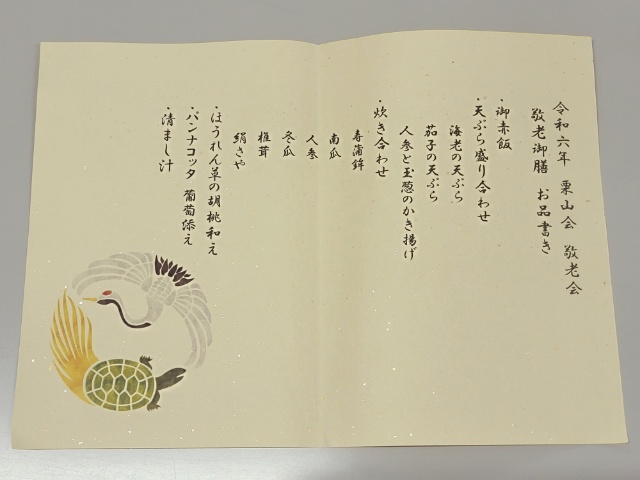 令和六年 栗山会 敬老会
敬老御膳 お品書き
・御赤飯
・天ぷら盛り合わせ
海老の天ぷら
茄子の天ぷら
人参と玉葱のかき揚げ
・炊き合わせ
寿蒲鉾
南瓜
人参
冬瓜
椎茸
絹さや
・ほうれん草の胡桃和え
・パンナコッタ 葡萄添え
・清まし汁